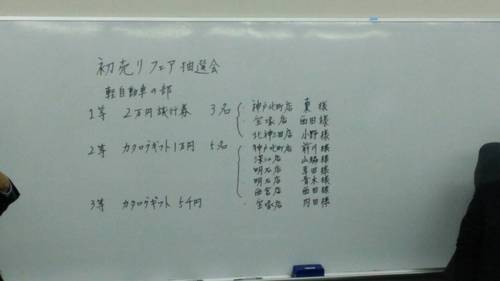 初売りフェア抽選会
軽自動車の部
1等 2万円旅行券 3名 神戸北町店 東様
宝塚店 西田様
北神三田店 小野様
2等 カタログギフト1万円 5名 神戸北町店 前川様
深江店 山脇様
明石店 吉田様
明石店 青木様
西宮店 西田様
3等 カタログギフト 5千円 ・宝塚店 内田様